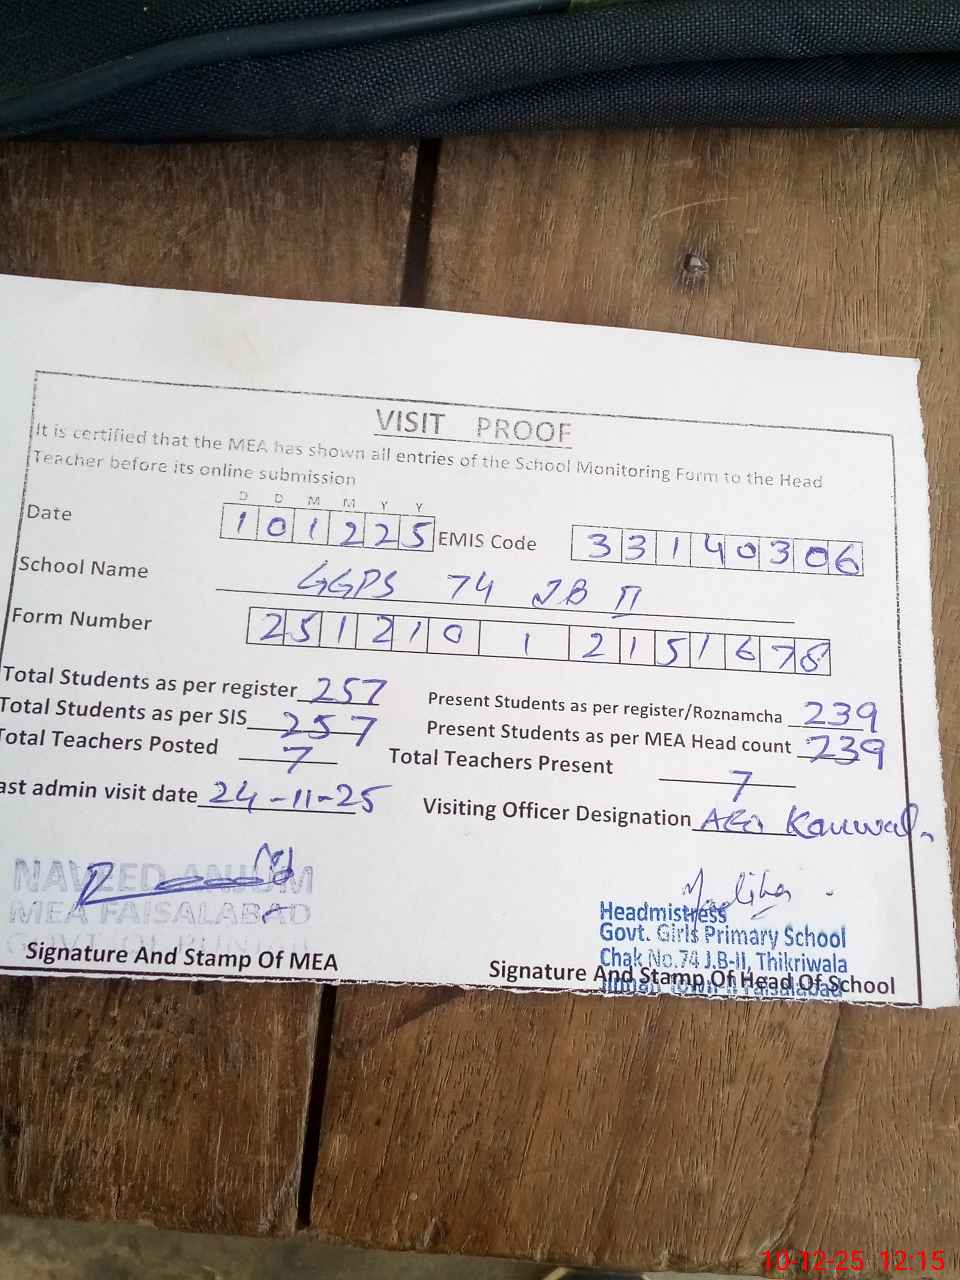 VISIT PROOF
It is certified that the MEA has shown all entries of the School Monitoring Form to the Head
Teacher before its online submission
D D M M Y Y
Date 1 0 1 2 2 5 EMIS Code 3 3 1 4 0 3 0 6
School Name GGPS 74 JB II
Form Number 2 5 1 2 1 0 1 2 1 5 1 6 7 8
Total Students as per register 257 Present Students as per register/Roznamcha 239
Total Students as per SIS 257 Present Students as per MEA Head count 239
Total Teachers Posted 7 Total Teachers Present 7
ast admin visit date 24-11-25 Visiting Officer Designation Kanwal
NAVEED ANJUM
MEA FAISALABAD
GOVT OF PUNJAB
Signature And Stamp Of MEA
Madiha
Headmistress
Govt. Girls Primary School
Chak No.74 J.B-II, Thikriwala
Signature And Stamp Of Head Of School
Faisalabad
10-12-25 12:15